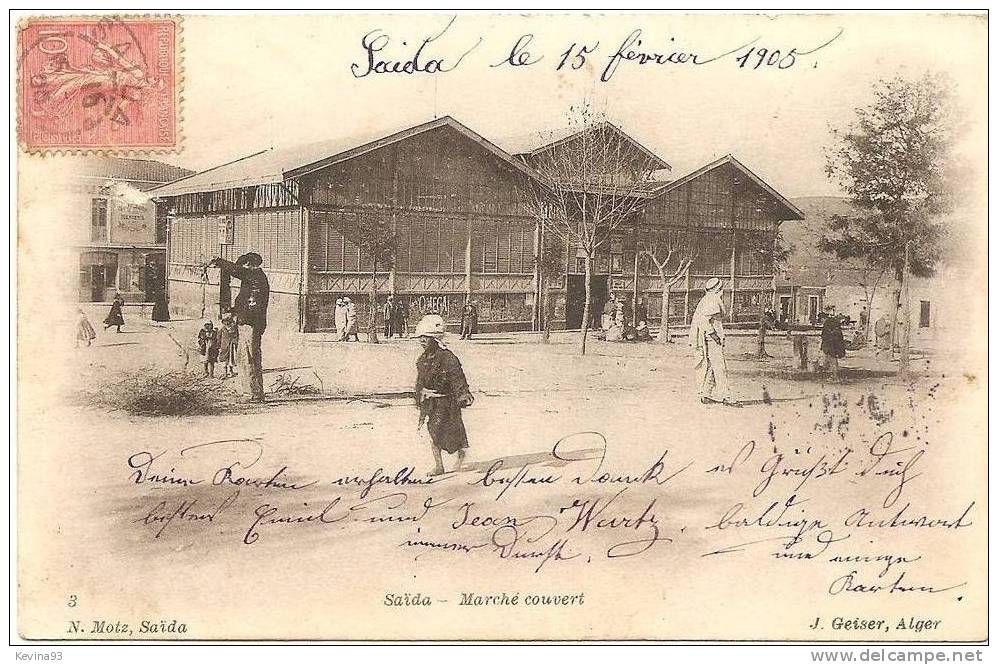 Saida le 15 février 1905.
10
SAIDA
OMEGA
Deine Karten erhalten besten Dank es Grüßt Dich
bestens Emil und Jean Wartz. baldige Antwort
immer Durst. und einige
Karten.
3
Saïda - Marché couvert
N. Motz, Saïda
J. Geiser, Alger
Kevina93
www.delcampe.net